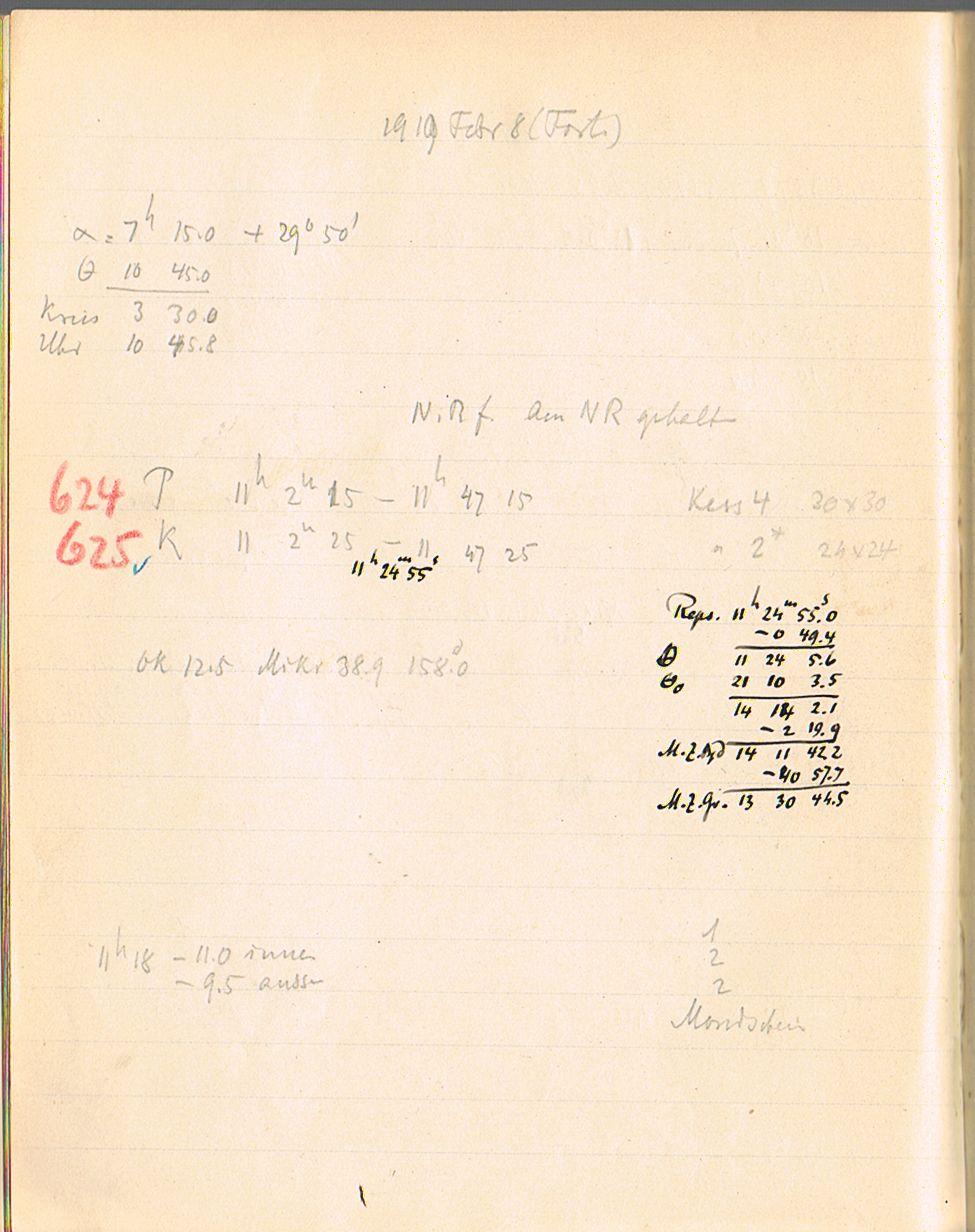 1919 Febr 8 (Forts.)
α = 7h 15.0 + 29° 50'
θ 10 45.0
Kreis 3 30.0
Uhr 10 45.8
N.R f. am NR gehalt
624 P 11h 2m 15 – 11h 47 15 Kass 4 30x30
625 K 11 2m 25 – 11 47 25 " 2* 24x24
11h 24m 55s
Reps. 11h 24m 55.0s
-0 49.4
θ 11 24 5.6
θ₀ 21 10 3.5
14 14 2.1
-2 19.9
M.Z. 14 11 42.2
-40 57.7
M.Z.Gr. 13 30 44.5
Ok 12.5 Mikr 38.9 158.0
11h 18 – 11.0 innen
– 9.5 aussen
1
2
2
Mondschein